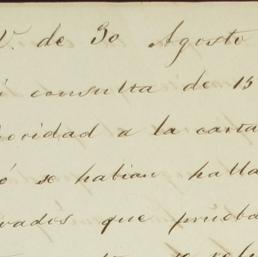 V. de 30 Agosto
consulta de 15
ioridad a la carta
ó se habian halla
vados que prueba